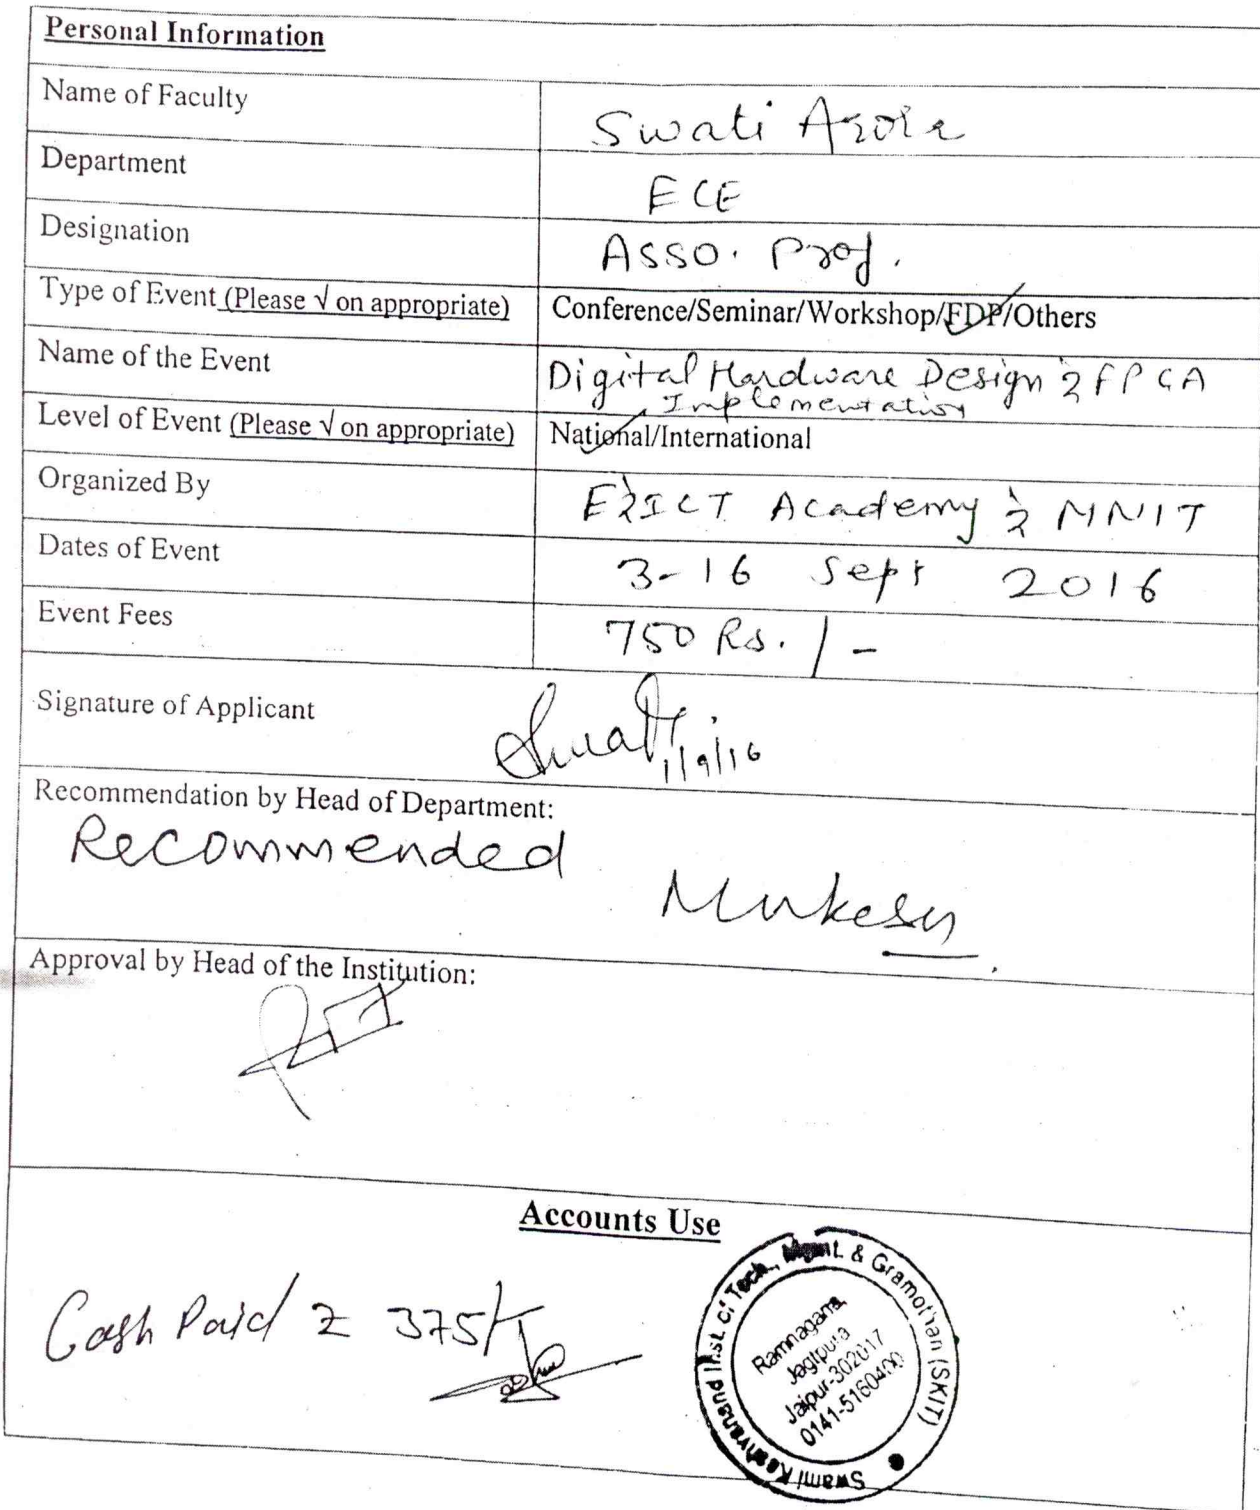 Personal Information
Name of Faculty
Swati Arora
Department
ECE
Designation
Asso. Prof.
Type of Event (Please √ on appropriate)
Conference/Seminar/Workshop/FDP/Others
Name of the Event
Digital Hardware Design & FPGA
Implementation
Level of Event (Please √ on appropriate)
National/International
Organized By
E&ICT Academy & MNIT
Dates of Event
3-16 Sept 2016
Event Fees
750 Rs. /-
Signature of Applicant
Swati
1/9/16
Recommendation by Head of Department:
Recommended
Mukesh
Approval by Head of the Institution:
Accounts Use
Cash Paid 375/-
Swami Keshvanand Inst. of Tech., Mgmt. & Gramothan (SKIT)
Ramnagaria,
Jagtpura
Jaipur-302017
0141-5160400